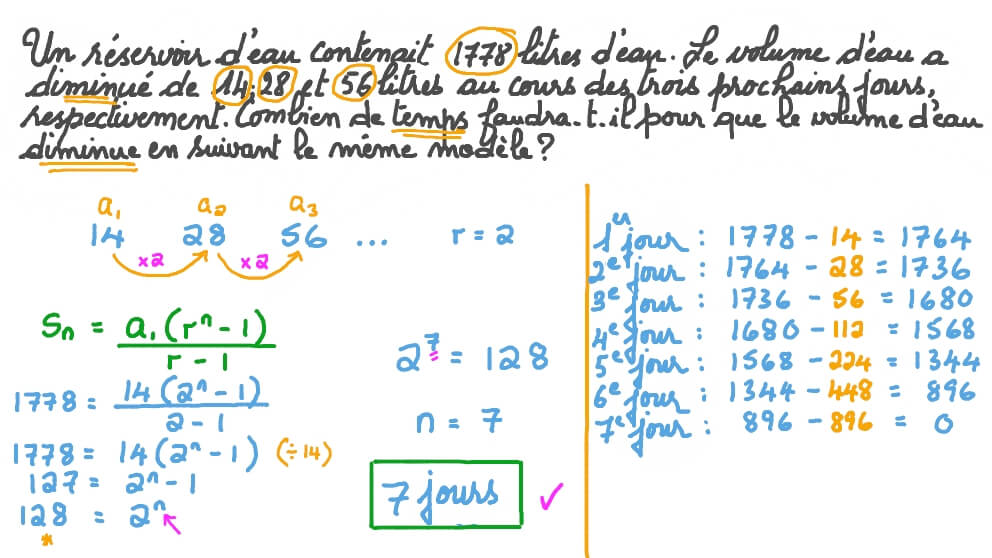 Un réservoir d'eau contenait 1778 litres d'eau. Le volume d'eau a
diminué de 14, 28 et 56 litres au cours des trois prochains jours,
respectivement. Combien de temps faudra-t-il pour que le volume d'eau
diminue en suivant le même modèle ?
a₁ a₂ a₃
14 28 56 ... r = 2
×2 ×2
Sₙ = a₁(rⁿ - 1) / r - 1
1778 = 14(2ⁿ - 1) / 2 - 1
1778 = 14(2ⁿ - 1) (÷14)
127 = 2ⁿ - 1
128 = 2ⁿ
*
2⁷ = 128
n = 7
7 jours ✓
1er jour : 1778 - 14 = 1764
2e jour : 1764 - 28 = 1736
3e jour : 1736 - 56 = 1680
4e jour : 1680 - 112 = 1568
5e jour : 1568 - 224 = 1344
6e jour : 1344 - 448 = 896
7e jour : 896 - 896 = 0